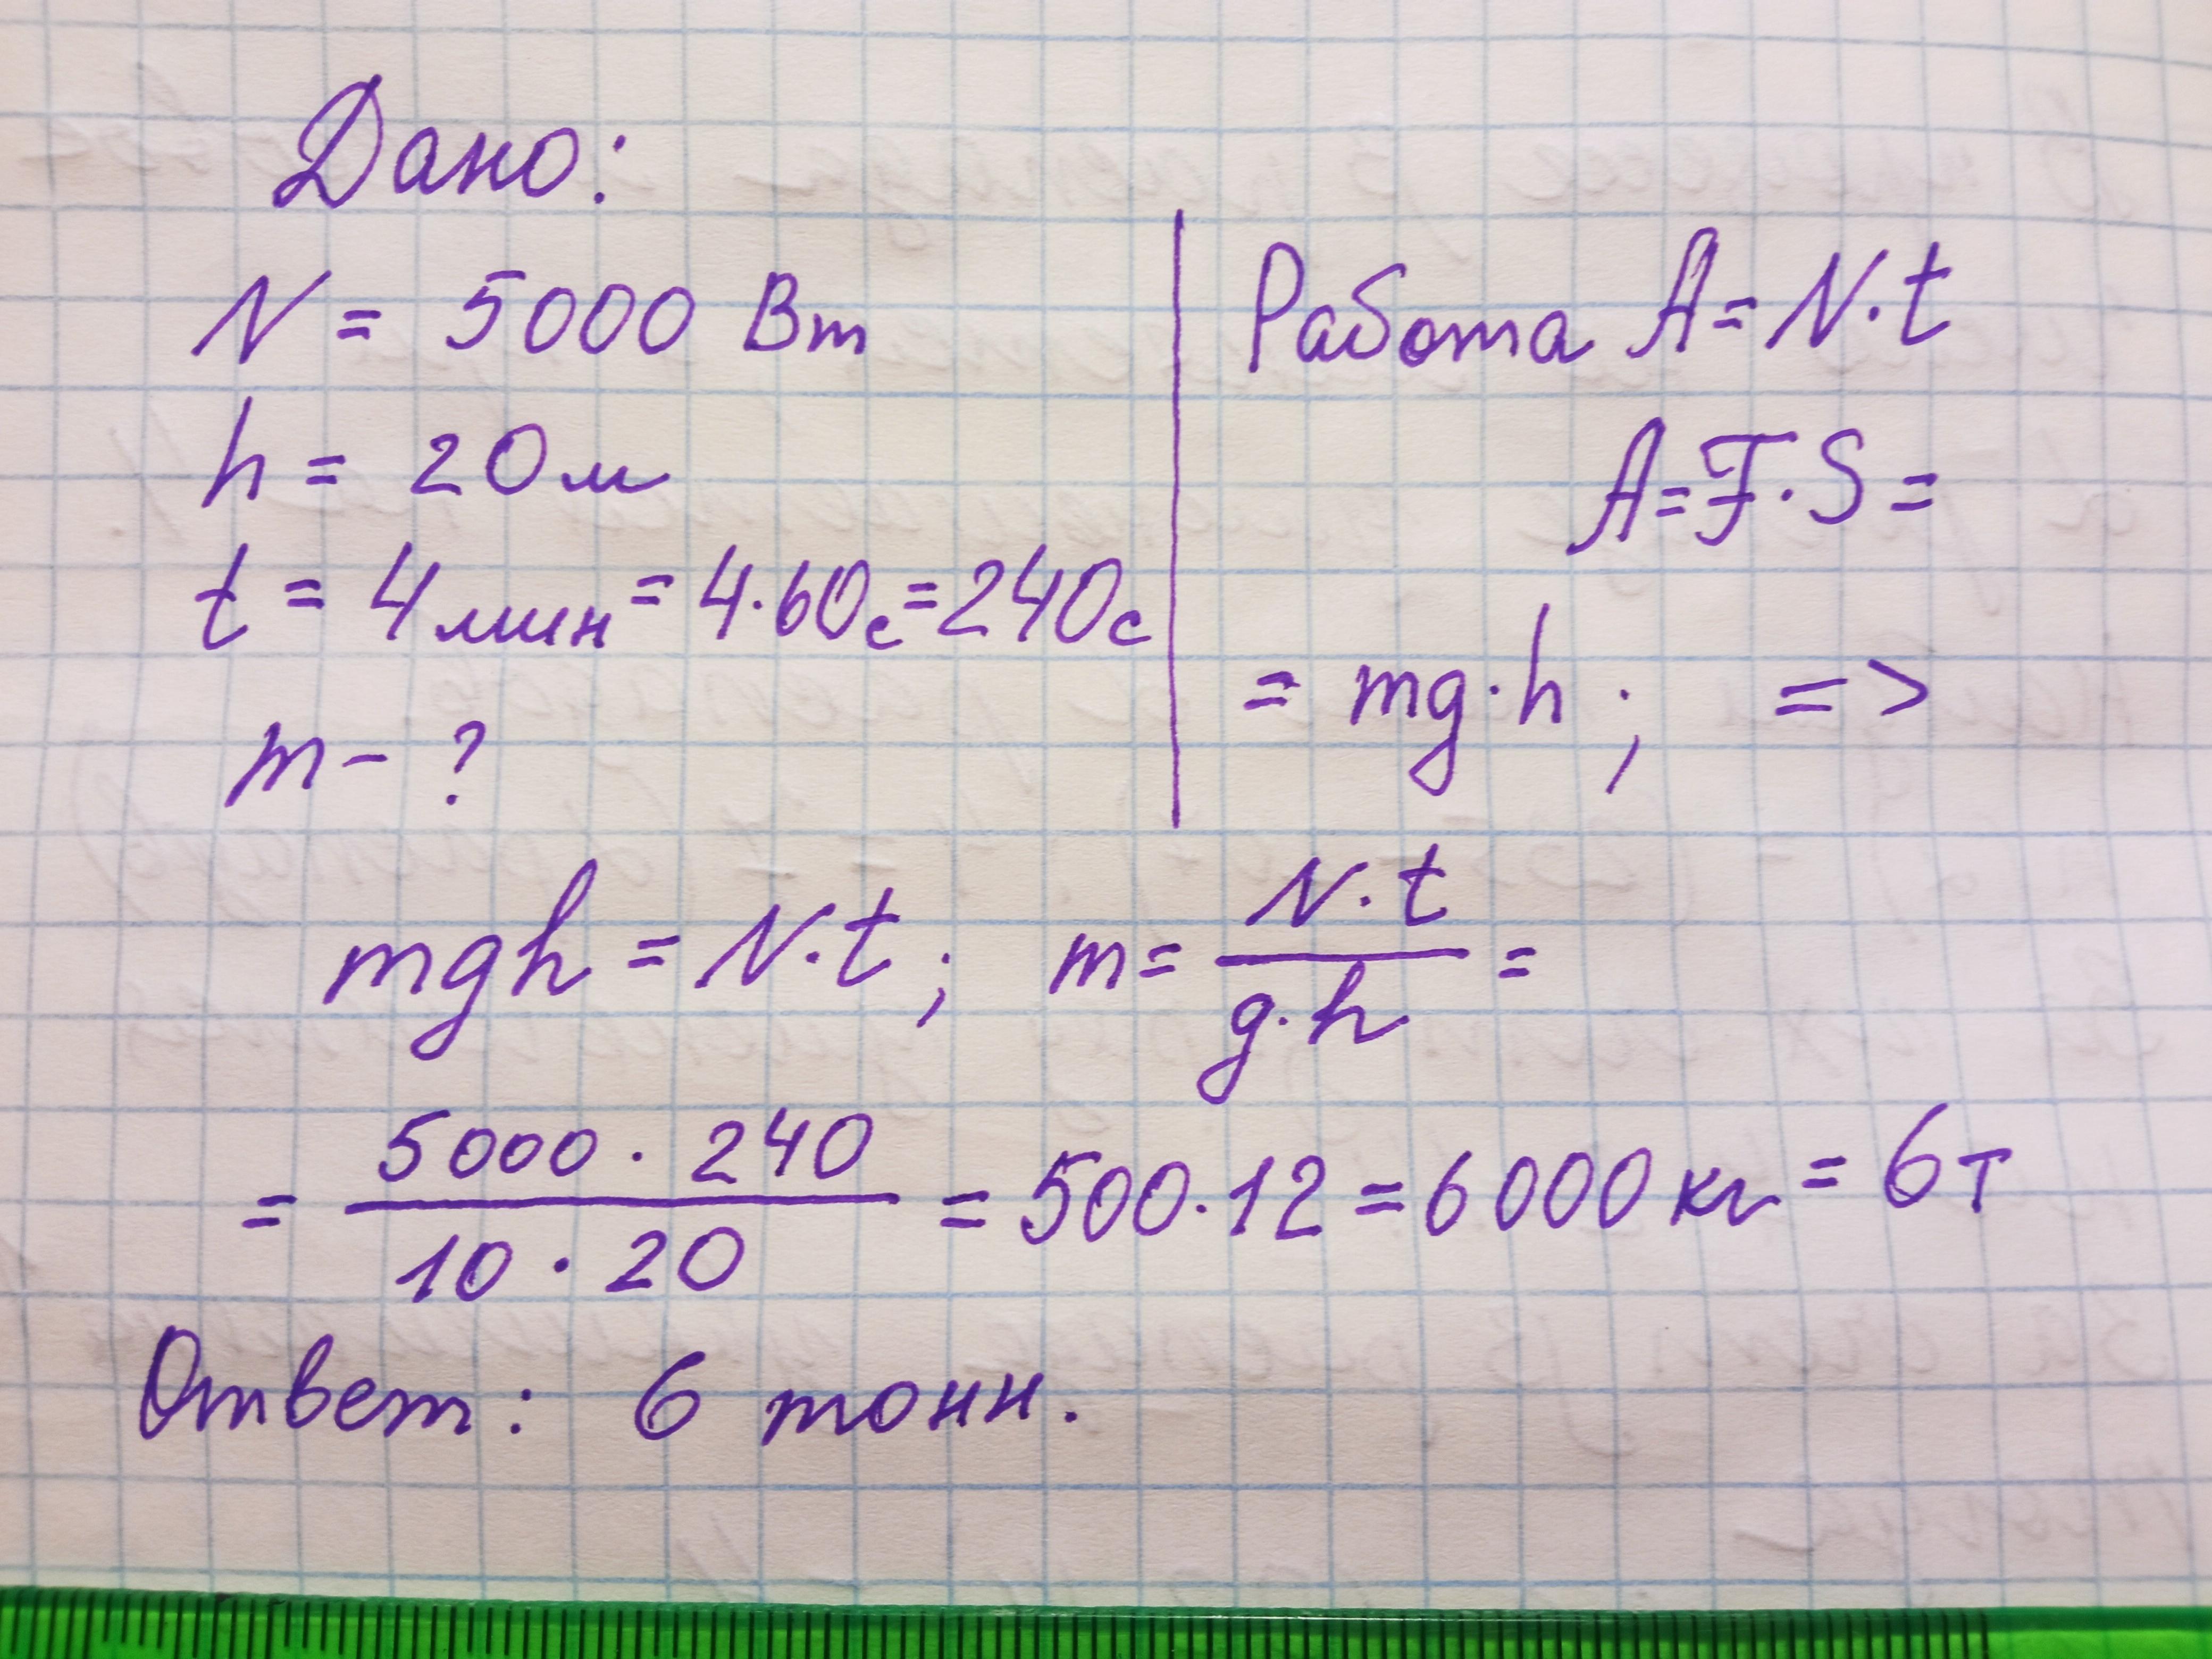 Дано:
N = 5000 Вт
h = 20 м
t = 4 мин = 4·60с = 240с
m - ?
Работа A = N·t
A = F·S =
= mg·h ; =>
mgh = N·t ; m = N·t / g·h =
= 5000 · 240 / 10 · 20 = 500·12 = 6000 кг = 6т
Ответ: 6 тонн.